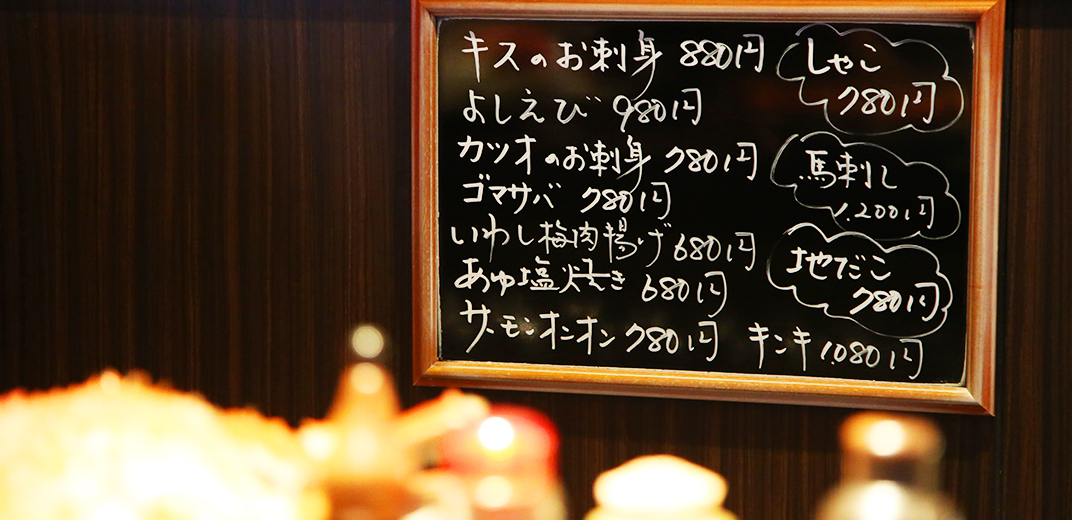 キスのお刺身 880円
よしえび 980円
カツオのお刺身 780円
ゴマサバ 780円
いわし梅肉揚げ 680円
あゆ塩焼き 680円
サーモンオニオン 780円
キンキ 1.080円
しゃこ
780円
馬刺し
1.200円
地だこ
780円